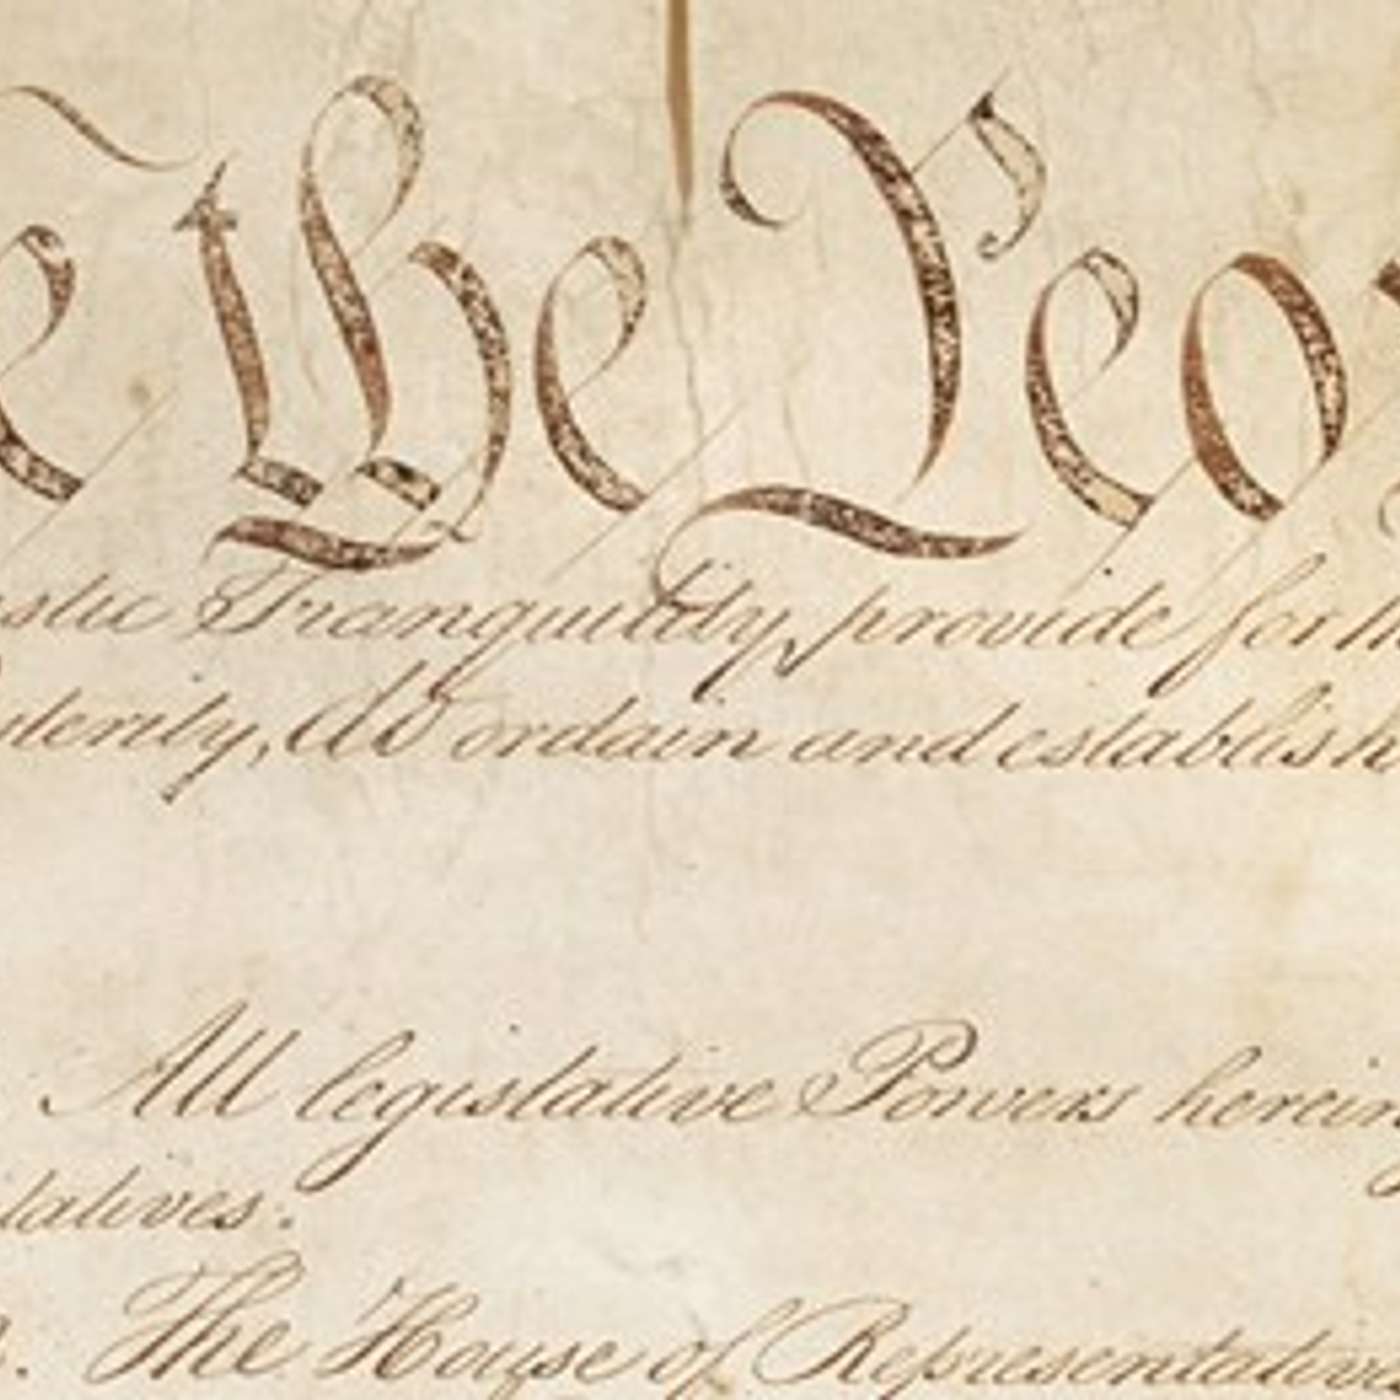 e the Peo
stic Tranquility, provide for the
sterity, do ordain and establish
All legislative Powers herein
tatives.
n. The House of Representative